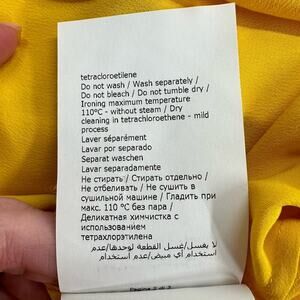 tetracloroetilene
Do not wash / Wash separately /
Do not bleach / Do not tumble dry /
Ironing maximum temperature
110°C - without steam / Dry
cleaning in tetrachloroethene - mild
process
Laver séparément
Lavar por separado
Separat waschen
Lavar separadamente
Не стирать / Стирать отдельно /
Не отбеливать / Не сушить в
сушильной машине / Гладить при
макс. 110 °C без пара /
Деликатная химчистка с
использованием
тетрахлорэтилена
لا يغسل/غسل القطعة لوحدها/عدم
استخدام أي مبيض/عدم استخدام
Pagina 2 di 3